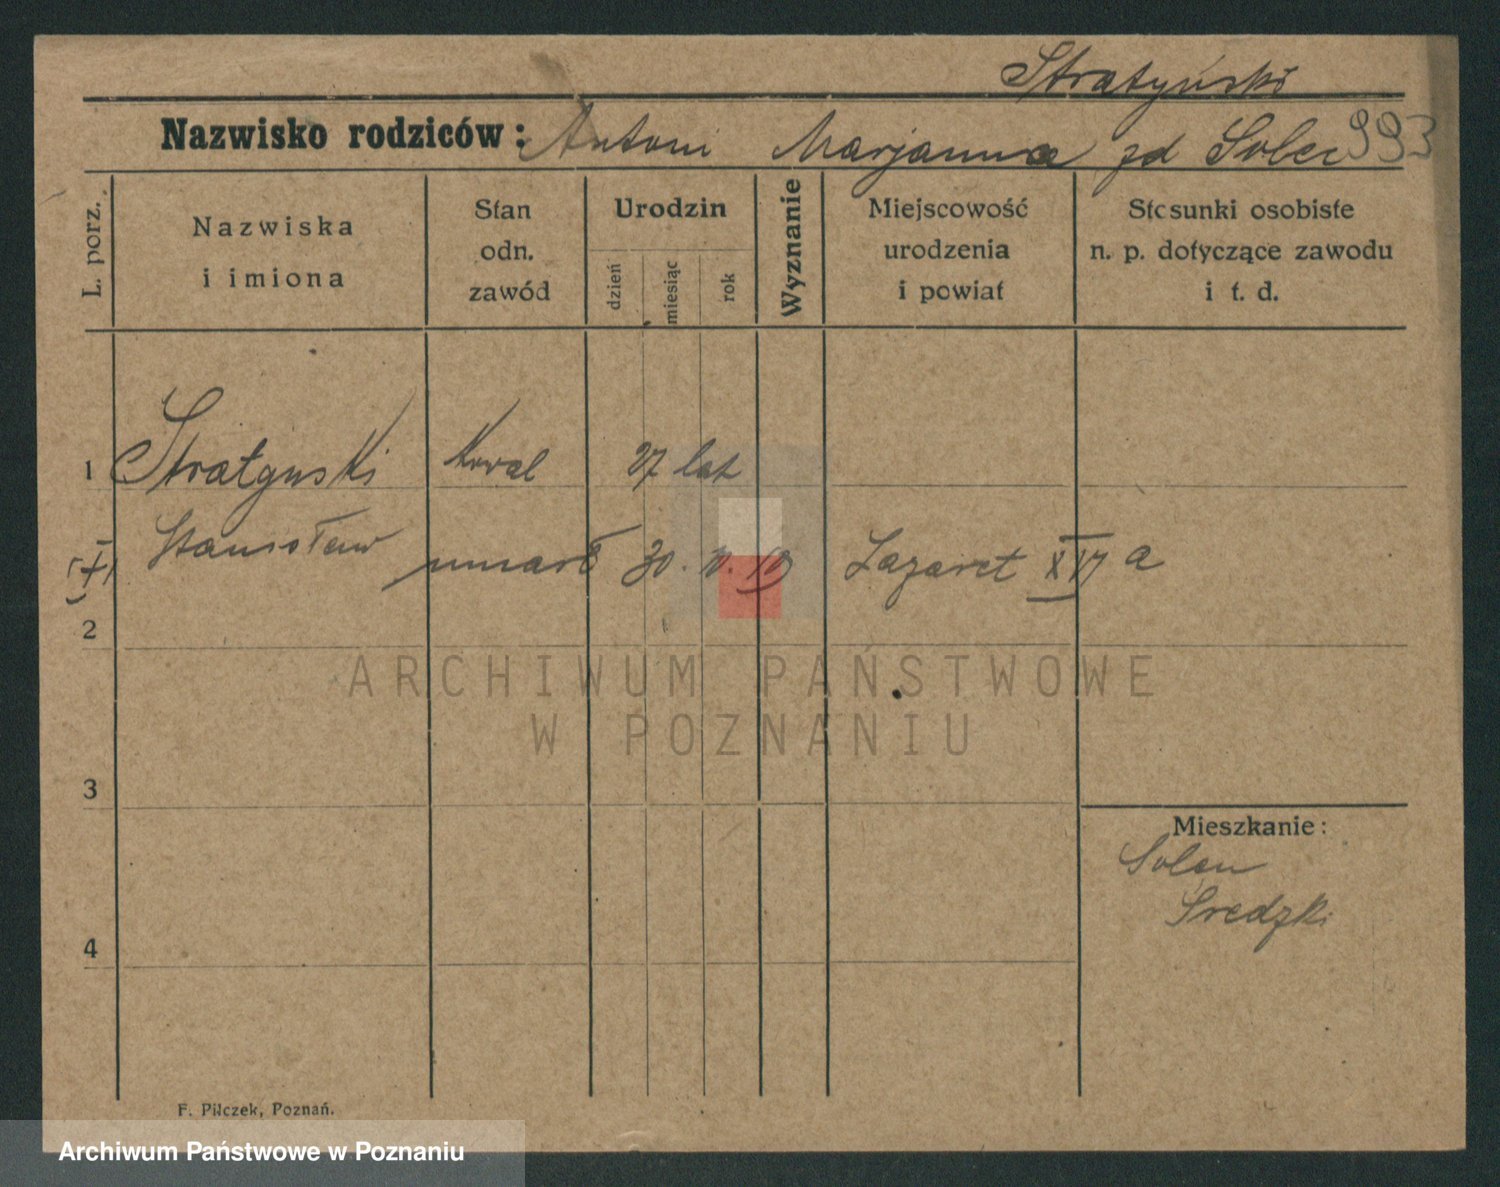 Stratyński
Nazwisko rodziców: Antoni Marjanna zd Solec 993
L. porz.
Nazwiska
i imiona
Stan
odn.
zawód
Urodzin
dzień
miesiąc
rok
Wyznanie
Miejscowość
urodzenia
i powiat
Stosunki osobiste
n. p. dotyczące zawodu
i t. d.
1 Stratyński Kowal 27 lat
Stanisław umarł 30. 10. 19 Lazaret XIV a
(+)
2
ARCHIWUM PAŃSTWOWE
W POZNANIU
3
Mieszkanie:
Solec
Średzki
4
F. Pilczek, Poznań.
Archiwum Państwowe w Poznaniu